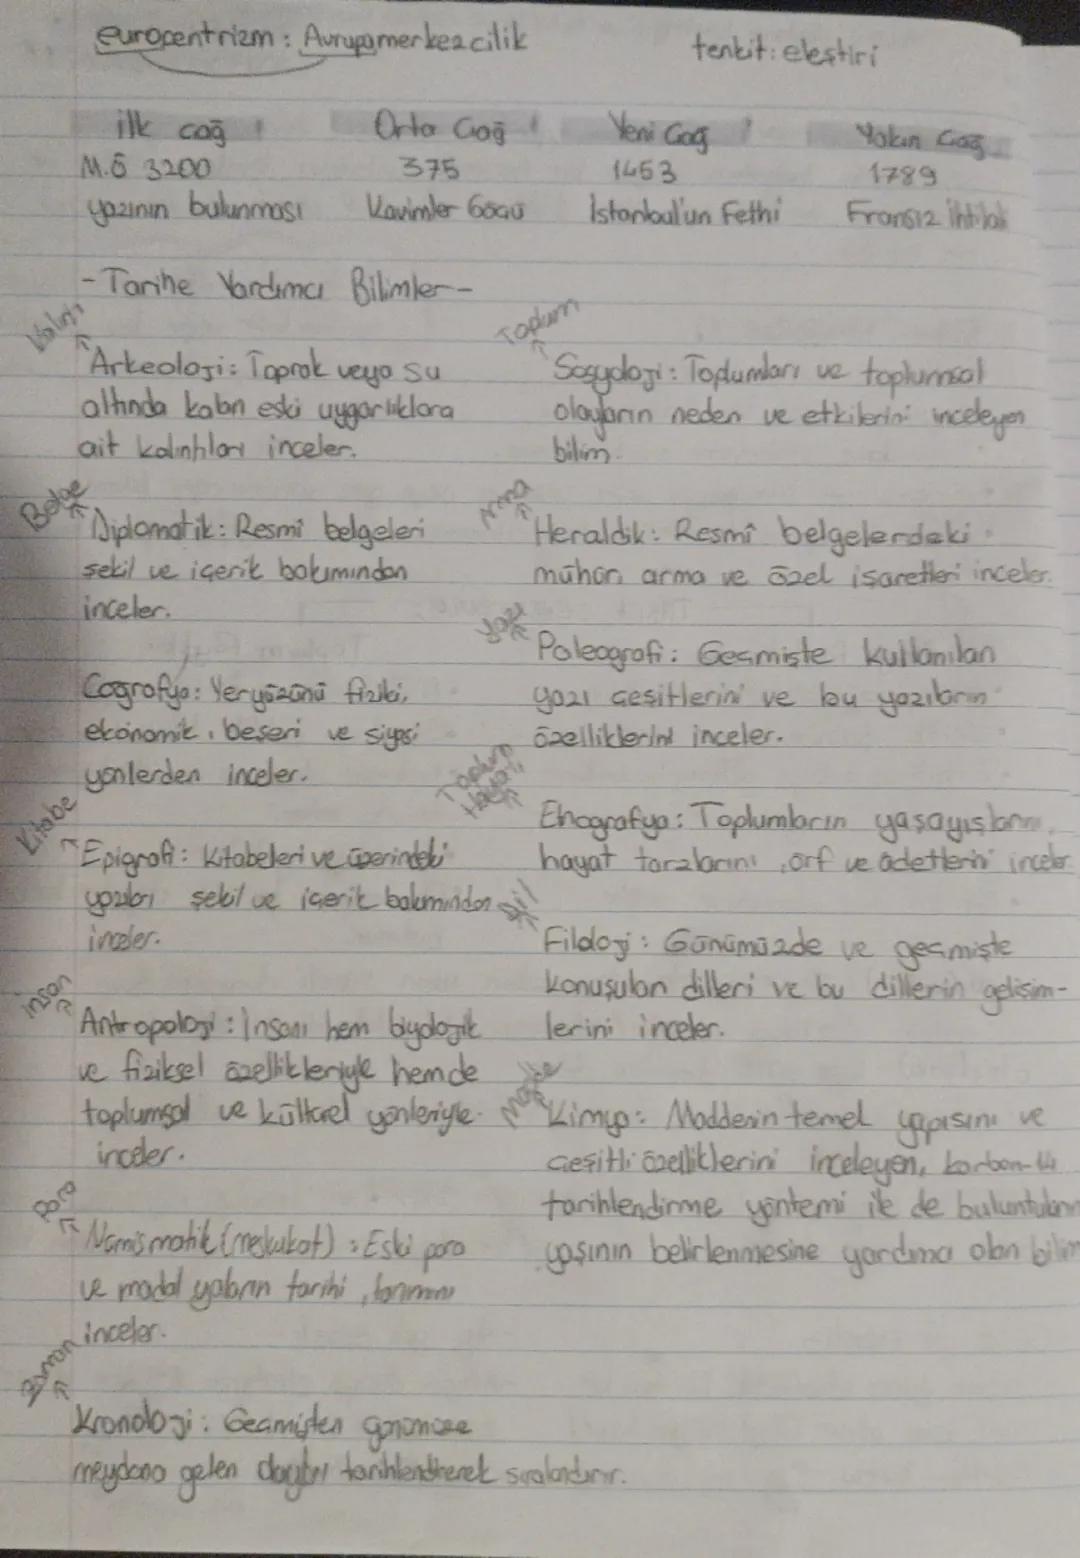 eurocentrizm : Avrupamerkezcilik
tenkit : eleştiri
ilk çağ
Orta Çağ
Yeni Çağ
Yakın Çağ
M.Ö 3200
375
1453
1789
yazının bulunması
Kavimler Göçü
İstanbul'un Fethi
Fransız İhtilali
- Tarihe Yardımcı Bilimler -
Kalıntı
Arkeoloji : Toprak veya su
altında kalan eski uygarlıklara
ait kalıntıları inceler.
Belge
Diplomatik : Resmî belgeleri
şekil ve içerik bakımından
inceler.
Coğrafya : Yeryüzünü fiziki,
ekonomik, beşeri ve siyasi
yönlerden inceler.
Kitabe
Epigrafi : Kitabeleri ve üzerindeki
yazıları şekil ve içerik bakımından
inceler.
insan
Antropoloji : İnsanı hem biyolojik
ve fiziksel özellikleriyle hemde
toplumsal ve kültürel yönleriyle
inceler.
Para
Nümismatik (meskukat) : Eski para
ve madalyaların tarihi, tanımını
inceler.
Zaman
Kronoloji : Geçmişten günümüze
meydana gelen olayları tarihlendirerek sıralandırır.
Toplum
Sosyoloji : Toplumları ve toplumsal
olayların neden ve etkilerini inceleyen
bilim.
Arma
Heraldik : Resmî belgelerdeki
mühür, arma ve özel işaretleri inceler.
yazı
Paleografi : Geçmişte kullanılan
yazı çeşitlerini ve bu yazıların
özelliklerini inceler.
Toplum
Hayatı
Etnografya : Toplumların yaşayışlarını,
hayat tarzlarını, örf ve adetlerini inceler.
Dil
Filoloji : Günümüzde ve geçmişte
konuşulan dilleri ve bu dillerin gelişim-
lerini inceler.
Madde
Kimya : Maddenin temel yapısını ve
çeşitli özelliklerini inceleyen, karbon-14
tarihlendirme yöntemi ile de buluntuların
yaşının belirlenmesine yardımcı olan bilim